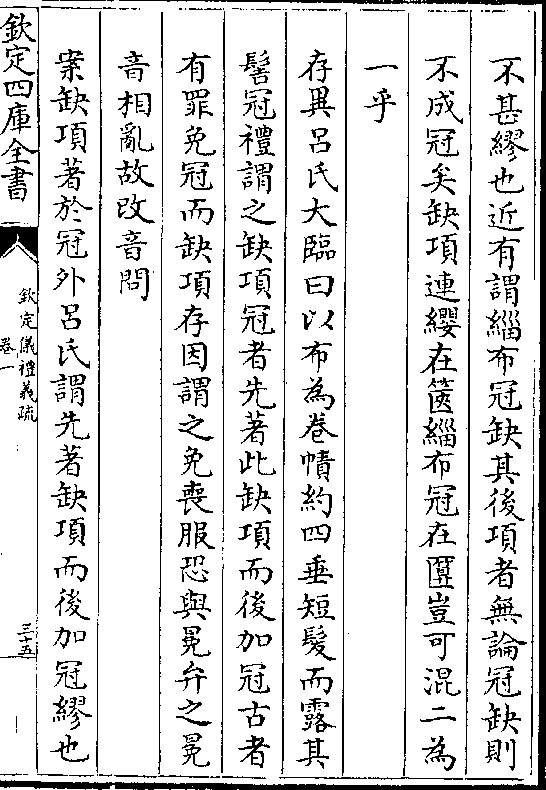 不甚繆也近有謂緇布冠缺其後項者無論冠缺則
不成冠矣缺項連纓在篋緇布冠在匴豈可混二為
一乎
存異呂氏大臨曰以布為卷幘約四垂短髮而露其
髻冠禮謂之缺項冠者先著此缺項而後加冠古者
有罪免冠而缺項存因謂之免喪服恐與冕弁之冕
音相亂故改音問
案缺項著於冠外呂氏謂先著缺項而後加冠繆也
欽定四庫全書
欽定儀禮義疏
卷一
三十五